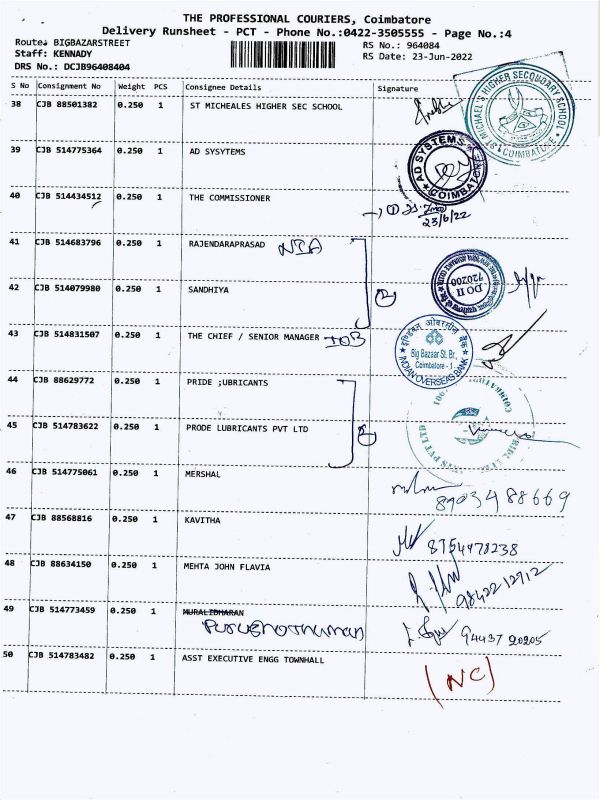 THE PROFESSIONAL COURIERS, Coimbatore
Delivery Runsheet - PCT - Phone No.:0422-3505555 - Page No.:4
Route: BIGBAZARSTREET RS No.: 964084
Staff: KENNADY RS Date: 23-Jun-2022
DRS No.: DCJB96408404
S No Consignment No Weight PCS Consignee Details Signature
38 CJB 88501382 0.250 1 ST MICHEALES HIGHER SEC SCHOOL
ST. MICHAEL'S HIGHER SECONDARY SCHOOL
COIMBATORE
39 CJB 514775364 0.250 1 AD SYSYTEMS
AD SYSTEMS
COIMBATORE
40 CJB 514434512 0.250 1 THE COMMISSIONER
23/6/22
41 CJB 514683796 0.250 1 RAJENDARAPRASAD NIA
42 CJB 514079980 0.250 1 SANDHIYA
2
DO II
720200
43 CJB 514831507 0.250 1 THE CHIEF / SENIOR MANAGER IOB
इण्डियन ओवरसीज़ बैंक
Big Bazaar St. Br.,
Coimbatore - 1
INDIAN OVERSEAS BANK
44 CJB 88629772 0.250 1 PRIDE ;UBRICANTS
45 CJB 514783622 0.250 1 PRODE LUBRICANTS PVT LTD
2
46 CJB 514775061 0.250 1 MERSHAL
8903488669
47 CJB 88568816 0.250 1 KAVITHA
8754478238
48 CJB 88634150 0.250 1 MEHTA JOHN FLAVIA
9842212912
49 CJB 514773459 0.250 1 MURALIDHARAN
Purushothuman
94437 20205
50 CJB 514783482 0.250 1 ASST EXECUTIVE ENGG TOWNHALL
(NC)